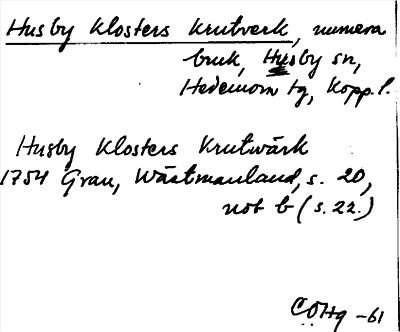 Husby Klosters Krutverk, numera
bruk, Husby sn,
Hedemora tg, Kopp. l.
Husby Klosters Krutwärk
1754 Grau, Wästmanland, s. 20,
not b (s. 22.)
CÖHg -61